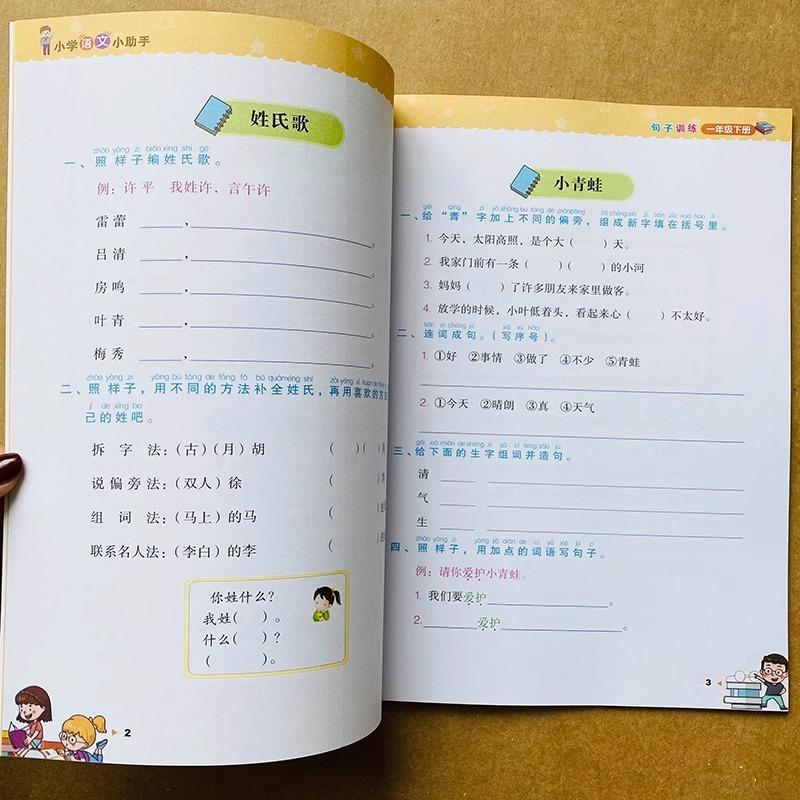 小学语文小助手
姓氏歌
zhào yàng zi biān xìng shì gē
一、照样子编姓氏歌。
例：许平 我姓许，言午许
雷蕾 ______，______。
吕清 ______，______。
房鸣 ______，______。
叶青 ______，______。
梅秀 ______，______。
zhào yàng zi yòng bù tóng de fāng fǎ bǔ quán xìng shì
二、照样子，用不同的方法补全姓氏，再用喜欢的方法
jǐ de xìng ba
己的姓吧。
拆字法：（古）（月）胡 （ ）（ ）
说偏旁法：（双人）徐 （ ）
组词法：（马上）的马 （ ）
联系名人法：（李白）的李 （
你姓什么？
我姓（ ）。
什么（ ）？
（ ）。
2
句子训练 一年级下册
小青蛙
gěi qīng zì jiā shàng bù tóng de piān páng zǔ chéng xīn zì tián zài kuò hào lǐ
一、给“青”字加上不同的偏旁，组成新字填在括号里。
1. 今天，太阳高照，是个大（ ）天。
2. 我家门前有一条（ ）（ ）的小河
3. 妈妈（ ）了许多朋友来家里做客。
4. 放学的时候，小叶低着头，看起来心（ ）不太好。
lián cí chéng jù xiě xù hào
二、连词成句。（写序号）。
1. ①好 ②事情 ③做了 ④不少 ⑤青蛙
2. ①今天 ②晴朗 ③真 ④天气
gěi xià miàn de shēng zì zǔ cí bìng zào jù
三、给下面的生字组词并造句。
清
气
生
zhào yàng zi yòng jiā diǎn de cí yǔ xiě jù zi
四、照样子，用加点的词语写句子。
例：请你爱护小青蛙。
1. 我们要爱护______。
2. ______爱护______。
3